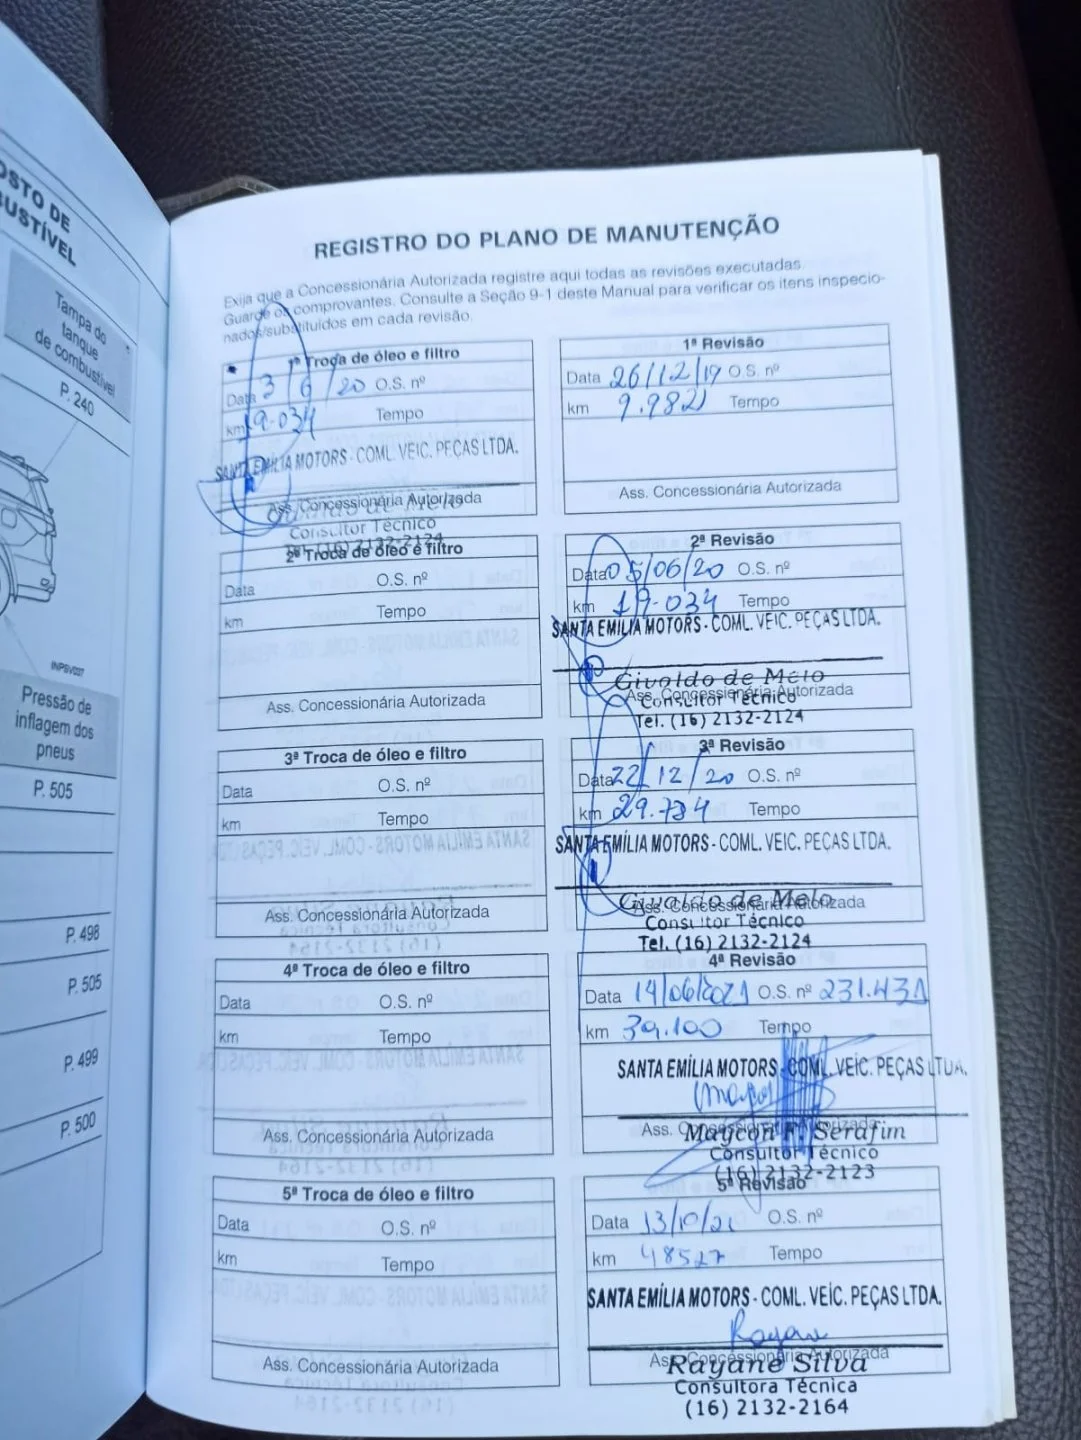 OSTO DE
BUSTÍVEL
Tampa do
tanque
de combustível
P. 240
INPBV037
Pressão de
inflagem dos
pneus
P. 505
P. 498
P. 505
P. 499
P. 500
REGISTRO DO PLANO DE MANUTENÇÃO
Exija que a Concessionária Autorizada registre aqui todas as revisões executadas.
Guarde os comprovantes. Consulte a Seção 9-1 deste Manual para verificar os itens inspecio-
nados/substituídos em cada revisão.
1ª Troca de óleo e filtro
Data 3/6/20 O.S. nº
km 19.034 Tempo
SANTA EMÍLIA MOTORS - COML. VEIC. PEÇAS LTDA.
Ass. Concessionária Autorizada
Givaldo de Melo
Consultor Técnico
Tel. (16) 2132-2124
1ª Revisão
Data 26/12/19 O.S. nº
km 9.982 Tempo
Ass. Concessionária Autorizada
2ª Troca de óleo e filtro
Data O.S. nº
km Tempo
Ass. Concessionária Autorizada
2ª Revisão
Data 05/06/20 O.S. nº
km 19.034 Tempo
SANTA EMILIA MOTORS - COML. VEÍC. PEÇAS LTDA.
Givaldo de Melo
Ass. Concessionária Autorizada
Consultor Técnico
Tel. (16) 2132-2124
3ª Troca de óleo e filtro
Data O.S. nº
km Tempo
Ass. Concessionária Autorizada
3ª Revisão
Data 22/12/20 O.S. nº
km 29.734 Tempo
SANTA EMÍLIA MOTORS - COML. VEÍC. PEÇAS LTDA.
Givaldo de Melo
Ass. Concessionária Autorizada
Consultor Técnico
Tel. (16) 2132-2124
4ª Troca de óleo e filtro
Data O.S. nº
km Tempo
Ass. Concessionária Autorizada
4ª Revisão
Data 14/06/2021 O.S. nº 231.431
km 39.100 Tempo
SANTA EMÍLIA MOTORS - COML. VEÍC. PEÇAS LTDA.
Ass. Concessionária Autorizada
Maycon F. Serafim
Consultor Técnico
(16) 2132-2123
5ª Troca de óleo e filtro
Data O.S. nº
km Tempo
Ass. Concessionária Autorizada
5ª Revisão
Data 13/10/21 O.S. nº
km 48527 Tempo
SANTA EMÍLIA MOTORS - COML. VEÍC. PEÇAS LTDA.
Rayane
Ass. Concessionária Autorizada
Rayane Silva
Consultora Técnica
(16) 2132-2164